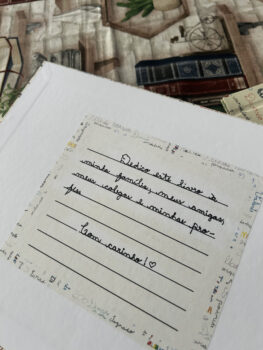 Dedico este livro à
minha família, meus amigos,
meus colegas e minhas pro-
fes
Com carinho! ♡